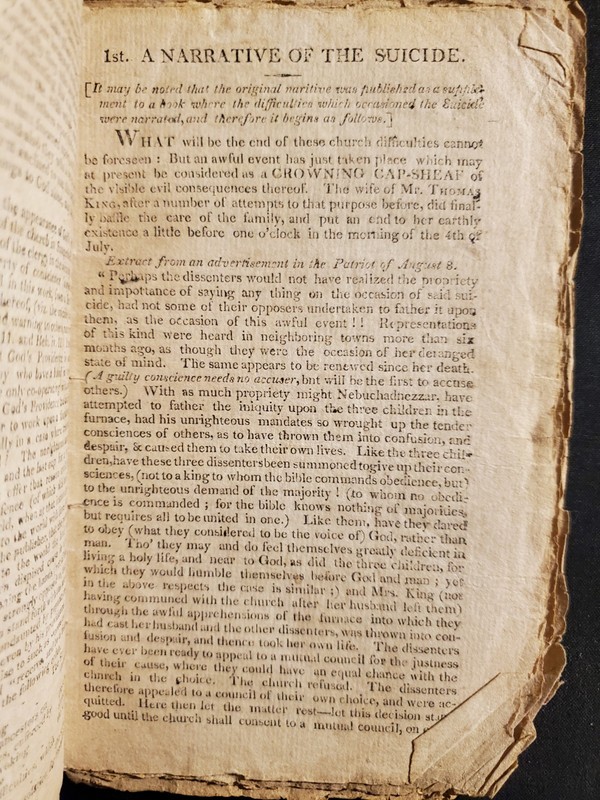 1st. A NARRATIVE OF THE SUICIDE.
[It may be noted that the original naritive was published as a supple-
ment to a book where the difficulties which occasioned the Suicide
were narrated, and therefore it begins as follows.]
WHAT will be the end of these church difficulties cannot
be foreseen : But an awful event has just taken place which may
at present be considered as a CROWNING CAP-SHEAF of
the visible evil consequences thereof. The wife of Mr. THOMAS
KING, after a number of attempts to that purpose before, did final-
ly baffle the care of the family, and put an end to her earthly
existence a little before one o'clock in the morning of the 4th of
July.
Extract from an advertisement in the Patriot of August 8.
" Perhaps the dissenters would not have realized the propriety
and importance of saying any thing on the occasion of said sui-
cide, had not some of their opposers undertaken to father it upon
them, as the occasion of this awful event ! ! Representations
of this kind were heard in neighboring towns more than six
months ago, as though they were the occasion of her deranged
state of mind. The same appears to be renewed since her death.
(A guilty conscience needs no accuser, but will be the first to accuse
others.) With as much propriety might Nebuchadnezzar, have
attempted to father the iniquity upon the three children in the
furnace, had his unrighteous mandates so wrought up the tender
consciences of others, as to have thrown them into confusion, and
despair, & caused them to take their own lives. Like the three chil-
dren, have these three dissenters been summoned to give up their con-
sciences, (not to a king to whom the bible commands obedience, but)
to the unrighteous demand of the majority ! (to whom no obedi-
ence is commanded ; for the bible knows nothing of majorities,
but requires all to be united in one.) Like them, have they dared
to obey (what they considered to be the voice of) God, rather than
man. Tho' they may and do feel themselves greatly deficient in
living a holy life, and near to God, as did the three children, for
which they would humble themselves before God and man ; yet
in the above respects the case is similar ;) and Mrs. King (not
having communed with the church after her husband left them)
through the awful apprehensions of the furnace into which they
had cast her husband and the other dissenters, was thrown into con-
fusion and despair, and thence took her own life. The dissenters
have ever been ready to appeal to a mutual council for the justness
of their cause, where they could have an equal chance with the
church in the choice. The church refused. The dissenters
therefore appealed to a council of their own choice, and were ac-
quitted. Here then let the matter rest—let this decision
good until the church shall consent to a mutual council, on